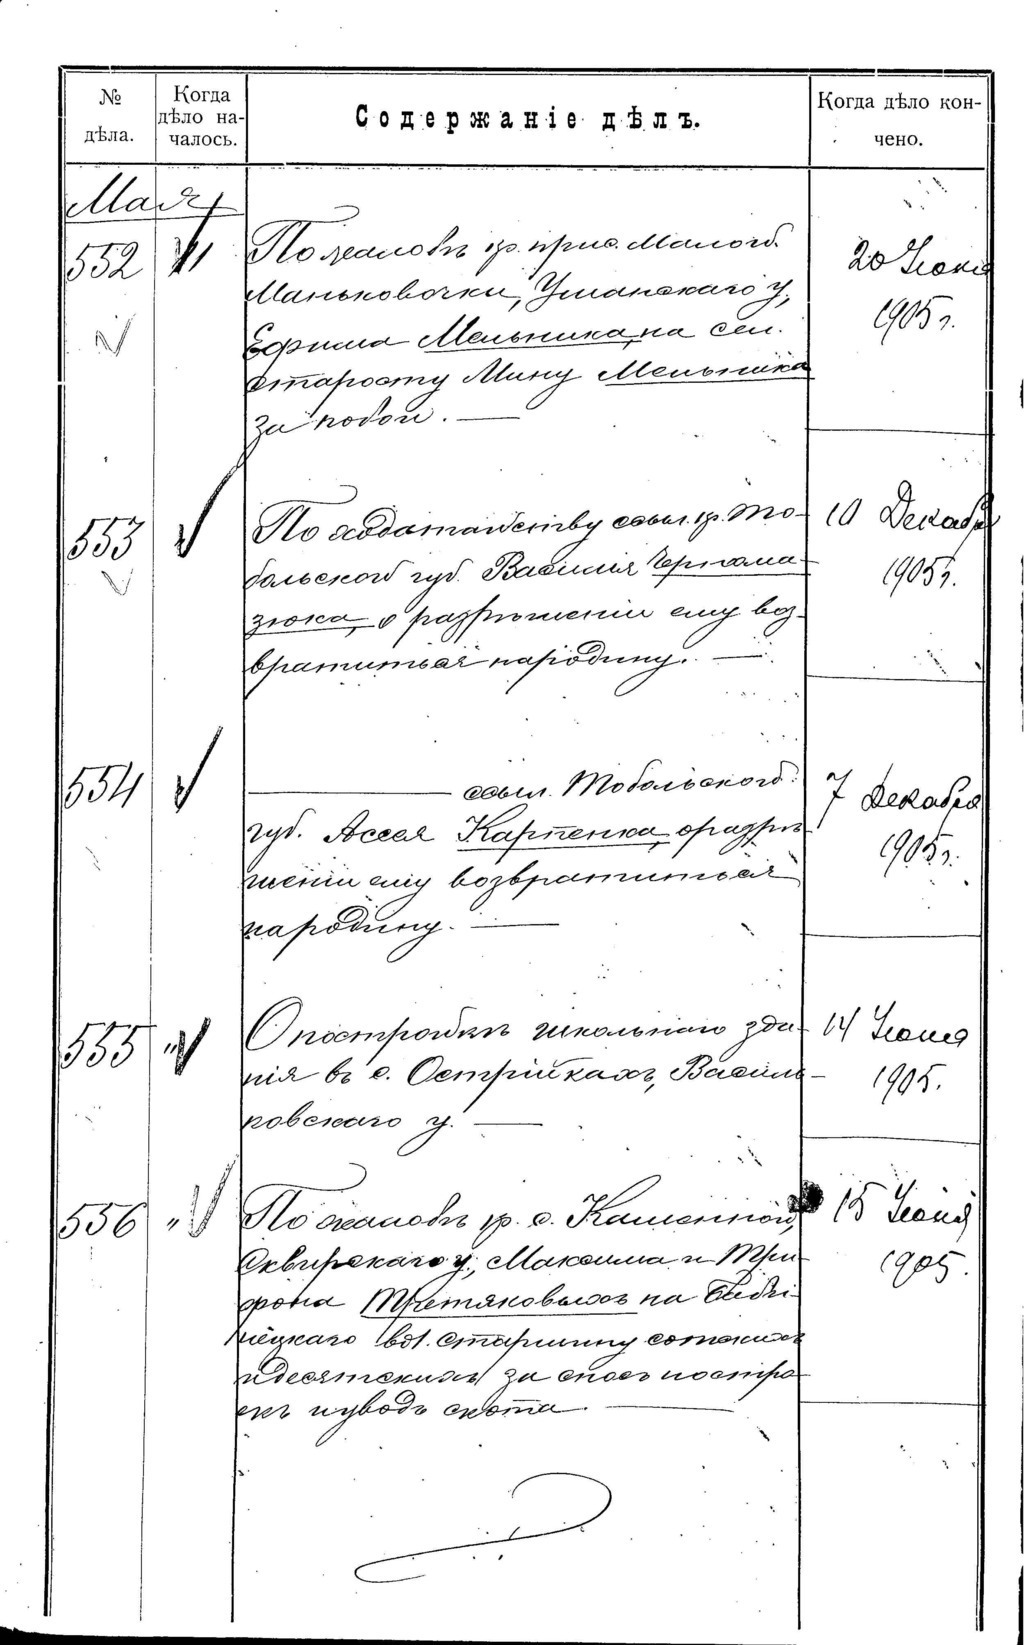 № дѣла.
Когда дѣло началось.
Содержаніе дѣлъ.
Когда дѣло кончено.
Мая
552
По жалобѣ кр. прис. Малой
Маньковочки, Уманскаго у,
Ефима Мельника, на сел.
старосту Мину Мельника
за побои. —
20 Іюня
1905 г.
553
По ходатайству ссыл. кр. То-
больской губ. Василія Чернома-
зюка, о разрѣшеніи ему воз-
вратиться на родину. —
10 Декабр
1905 г.
554
— ссыл. Тобольской
губ. Ассея Карпенка, о разрѣ-
шеніи ему возвратиться
на родину. —
7 Декабря
1905 г.
555 "
О постройкѣ школьнаго зда-
нія въ с. Острійкахъ, Василь-
ковскаго у. —
14 Іюня
1905.
556 "
По жалобѣ кр. с. Каменной,
Сквирскаго у., Максима и Три-
фона Третяковыхъ на
вол. старшину сотскихъ
и десятскихъ за сносъ постро-
екъ и уводъ скота. —
15 Іюня
1905.